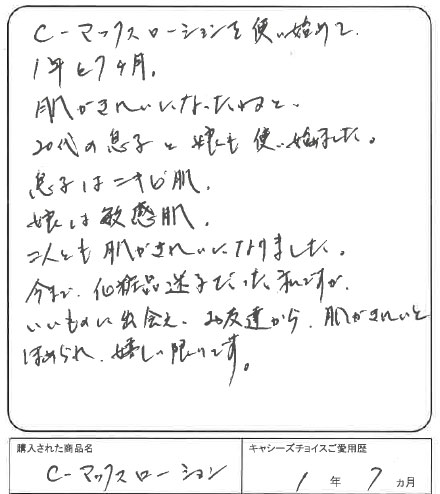 C-マックスローションを使い始めて
1年と7ヶ月。
肌がきれいになったねと、
20代の息子と娘も使い始めました。
息子はニキビ肌、
娘は敏感肌。
二人とも肌がきれいになりました。
今まで、化粧品迷子だった私ですが、
いいものに出会え、お友達から、肌がきれいと
ほめられ、嬉しい限りです。
購入された商品名
キャシーズチョイスご愛用歴
C-マックスローション
1年 7ヵ月